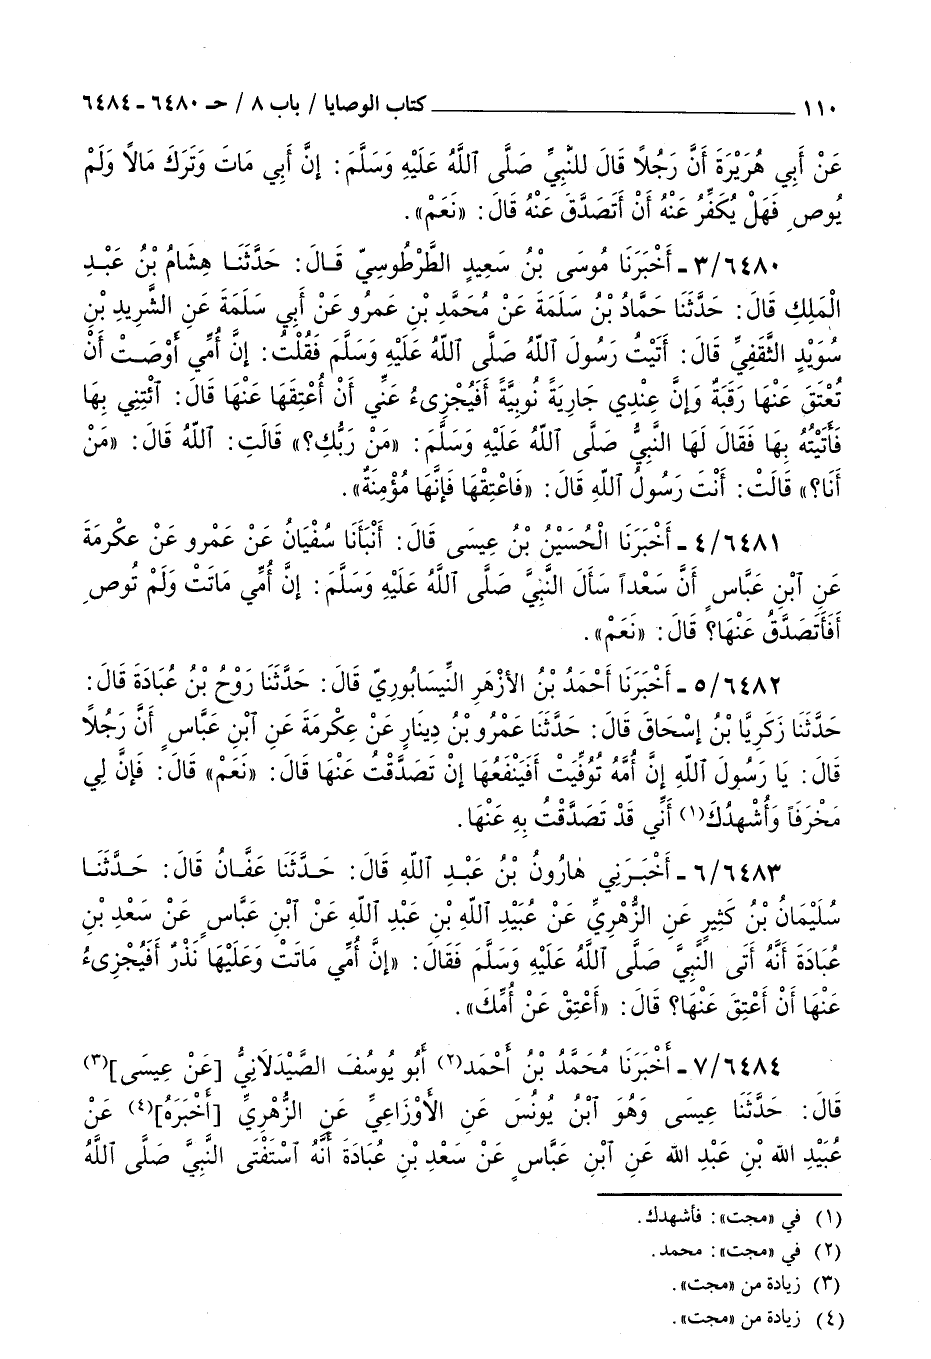 ١١٠ ــــــــ كتاب الوصايا / باب ٨ / حـ ٦٤٨٠ ـ ٦٤٨٤
عَنْ أَبِي هُرَيْرَةَ أَنَّ رَجُلاً قَالَ لِلنَّبِيِّ صَلَّى ٱللَّهُ عَلَيْهِ وَسَلَّمَ : إِنَّ أَبِي مَاتَ وَتَرَكَ مَالاً وَلَمْ
يُوصِ فَهَلْ يُكَفِّرُ عَنْهُ أَنْ أَتَصَدَّقَ عَنْهُ قَالَ : «نَعَمْ» .
٣/٦٤٨٠ ـ أَخْبَرَنَا مُوسَى بْنُ سَعِيدٍ الطَّرْطُوسِيّ قَالَ : حَدَّثَنَا هِشَامُ بْنُ عَبْدِ
الْمَلِكِ قَالَ : حَدَّثَنَا حَمَّادُ بْنُ سَلَمَةَ عَنْ مُحَمَّدِ بْنِ عَمرو عَنْ أَبي سَلَمَةَ عَنِ الشَّرِيدِ بْنِ
سُوَيْدٍ الثَّقَفِيِّ قَالَ : أَتَيْتُ رَسُولَ ٱللَّهِ صَلَّى ٱللَّهُ عَلَيْهِ وَسَلَّمَ فَقُلْتُ : إِنَّ أُمِّي أَوْصَتْ أَنْ
تُعْتَقَ عَنْهَا رَقَبَةٌ وَإِنَّ عِنْدِي جَارِيَةً نُوبِيَّةً أَفَيُجْزِىءُ عَنِّي أَنْ أُعْتِقَهَا عَنْهَا قَالَ : ٱئْتِنِي بِهَا
فَأَتَيْتُهُ بِهَا فَقَالَ لَهَا النَّبِيُّ صَلَّى ٱللَّهُ عَلَيْهِ وَسَلَّمَ : «مَنْ رَبُّكِ؟» قَالَتِ : ٱللَّهُ قَالَ : «مَنْ
أَنَا؟» قَالَتْ : أَنْتَ رَسُولُ ٱللَّهِ قَالَ : «فَاعْتِقْهَا فَإِنَّهَا مُؤْمِنَةٌ» .
٤/٦٤٨١ ـ أَخْبَرَنَا الْحُسَيْنُ بْنُ عِيسَى قَالَ : أَنْبَأَنَا سُفْيَانُ عَنْ عَمْرو عَنْ عكْرمَةَ
عَنِ ٱبْنِ عَبَّاسٍ أَنَّ سَعْداً سَأَلَ النَّبِيَّ صَلَّى ٱللَّهُ عَلَيْهِ وَسَلَّمَ : إِنَّ أُمِّي مَاتَتْ وَلَمْ تُوصِ
أَفَأَتَصَدَّقُ عَنْهَا؟ قَالَ : «نَعَمْ» .
٥/٦٤٨٢ ـ أَخْبَرَنَا أَحْمَدُ بْنُ الأَزْهَرِ النِّيسَابُورِيّ قَالَ : حَدَّثَنَا رَوْحُ بْنُ عُبَادَةَ قَالَ :
حَدَّثَنَا زَكَرِيَّا بْنُ إِسْحَاقَ قَالَ : حَدَّثَنَا عَمْرُو بْنُ دِينَارٍ عَنْ عِكْرِمَةَ عَنِ ٱبْنِ عَبَّاسٍ أَنَّ رَجُلاً
قَالَ : يَا رَسُولَ ٱللَّهِ إِنَّ أُمَّهُ تُوُفِّيَتْ أَفَيَنْفَعُهَا إِنْ تَصَدَّقْتُ عَنْهَا قَالَ : «نَعَمْ» قَالَ : فَإِنَّ لِي
مَخْرَفاً وَأُشْهِدُكَ(١) أَنِّي قَدْ تَصَدَّقْتُ بِهِ عَنْهَا .
٦/٦٤٨٣ ـ أَخْبَرَنِي هَارُونُ بْنُ عَبْدِ ٱللَّهِ قَالَ : حَدَّثَنَا عَفَّانُ قَالَ : حَدَّثَنَا
سُلَيْمَانُ بْنُ كَثِيرٍ عَنِ الزُّهْرِيِّ عَنْ عُبَيْدِ ٱللَّهِ بْنِ عَبْدِ ٱللَّهِ عَنْ ٱبْنِ عَبَّاسٍ عَنْ سَعْدِ بْنِ
عُبَادَةَ أَنَّهُ أَتَى النَّبِيَّ صَلَّى ٱللَّهُ عَلَيْهِ وَسَلَّمَ فَقَالَ : «إِنَّ أُمِّي مَاتَتْ وَعَلَيْهَا نَذْرٌ أَفَيُجْزِىءُ
عَنْهَا أَنْ أَعْتِقَ عَنْهَا؟ قَالَ : «أَعْتِقْ عَنْ أُمِّكَ» .
٧/٦٤٨٤ ـ أَخْبَرَنَا مُحَمَّدُ بْنُ أَحْمَد(٢) أَبُو يُوسُفَ الصَّيْدَلاَنِيُّ [عَنْ عِيسَى](٣)
قَالَ : حَدَّثَنَا عِيسَى وَهُوَ ٱبْنُ يُونُسَ عَنِ الأَوْزَاعِيِّ عَنِ الزُّهْرِيِّ [أَخْبَرَهُ](٤) عَنْ
عُبَيْدِ الله بْنِ عَبْدِ الله عَنِ ٱبْنِ عَبَّاسٍ عَنْ سَعْدِ بْنِ عُبَادَةَ أَنَّهُ ٱسْتَفْتَى النَّبِيَّ صَلَّى ٱللَّهُ
(١) في «مجت» : فأشهدك .
(٢) في «مجت» : محمد .
(٣) زيادة من «مجت» .
(٤) زيادة من «مجت» .